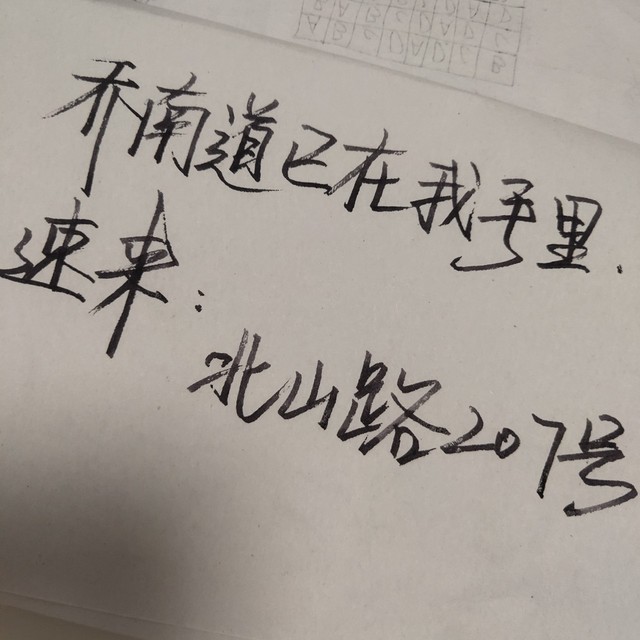 乔南道已在我手里.
速来:
北山路207号